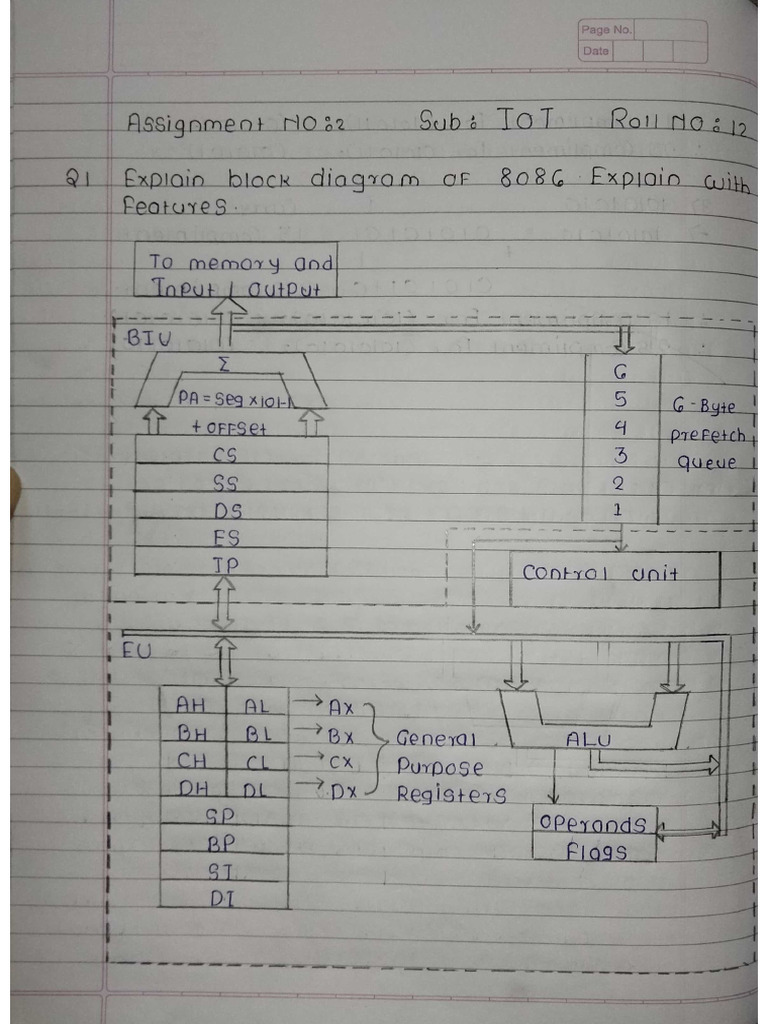 Page No.
Date
Assignment NO:2 Sub: IOT Roll NO:12
Q1 Explain block diagram OF 8086 Explain with
features.
To memory and
Input / output
BIU
Σ
PA = Seg × 10H
+ OFFSet
CS
SS
DS
ES
IP
6
5
4
3
2
1
6-Byte
Prefetch
queue
Control unit
EU
AH AL → Ax
BH BL → Bx
CH CL → Cx
DH DL → Dx
General
Purpose
Registers
SP
BP
SI
DI
ALU
Operands
Flags